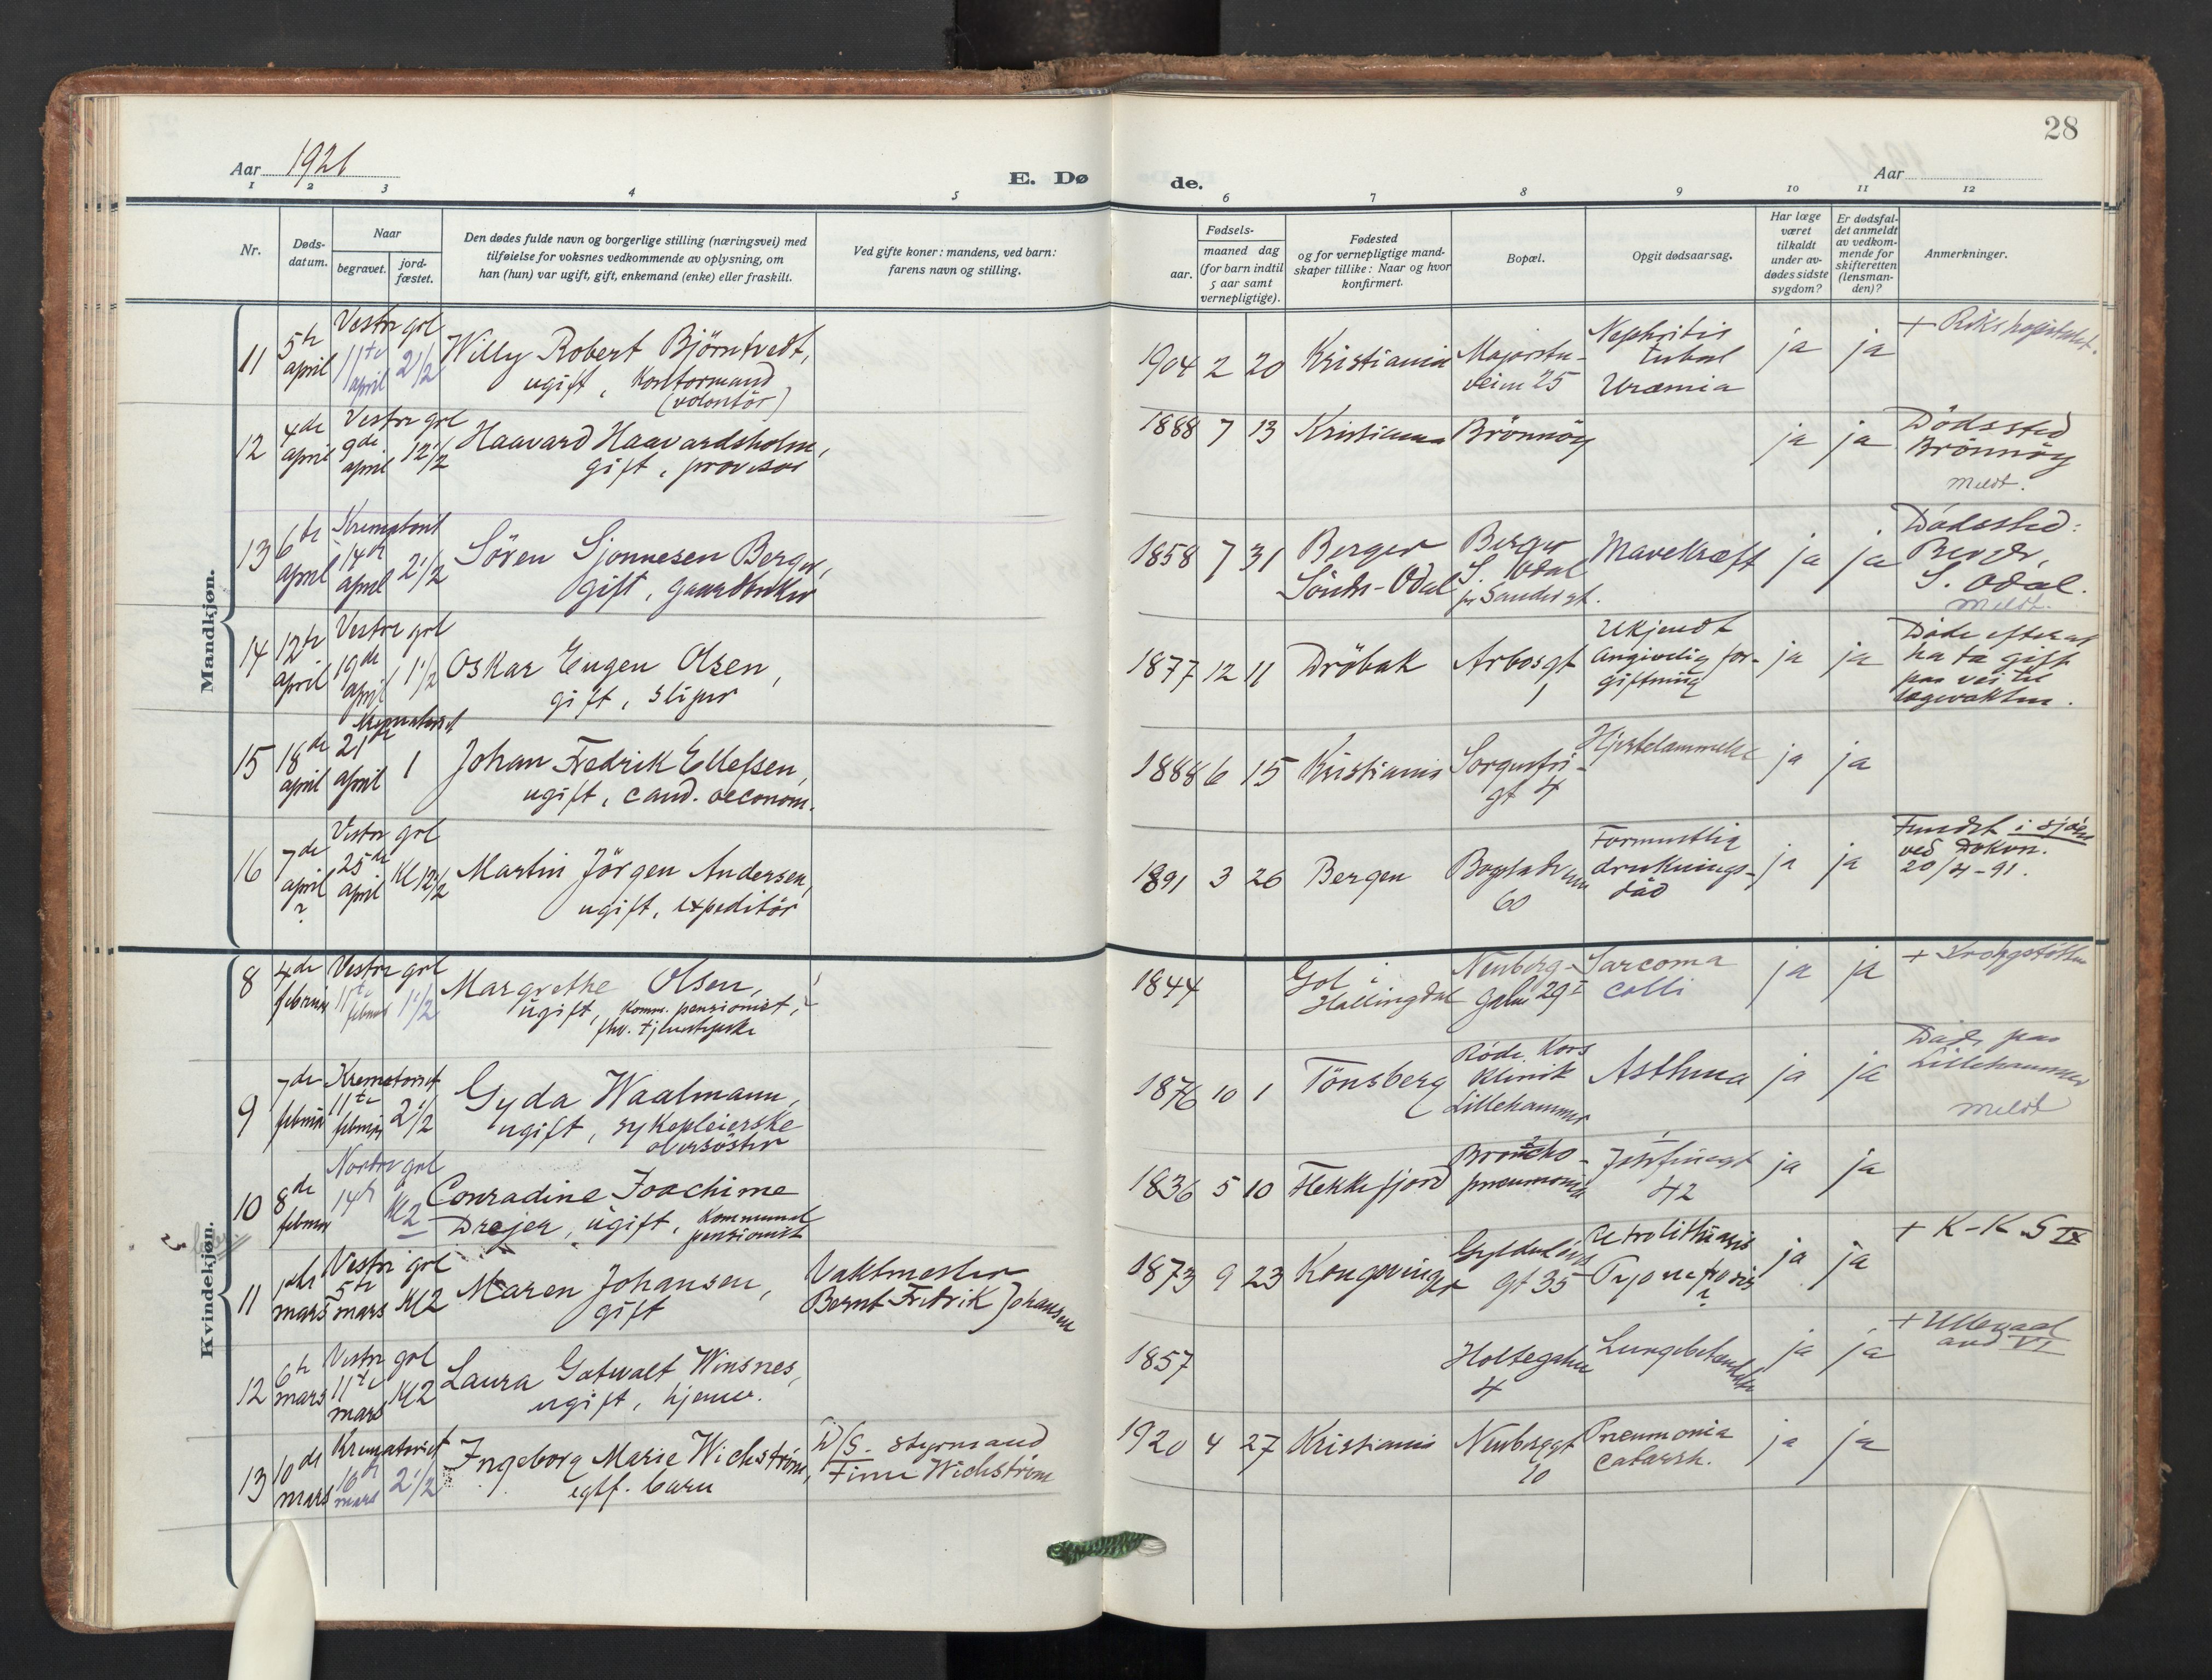 28
Aar 1921
E. Døde.
Aar
1 2 3 4 5 6 7 8 9 10 11 12
Nr.
Døds-
datum.
Naar
begravet.
jord-
fæstet.
Den dødes fulde navn og borgerlige stilling (næringsvei) med
tilføielse for voksnes vedkommende av oplysning, om
han (hun) var ugift, gift, enkemand (enke) eller fraskilt.
Ved gifte koner: mandens, ved barn:
farens navn og stilling.
Fødsels-
aar.
maaned dag
(for barn indtil
5 aar samt
vernepligtige).
Fødested
og for vernepligtige mand-
skaper tillike: Naar og hvor
konfirmert.
Bopæl.
Opgit dødsaarsag.
Har læge
været
tilkaldt
under av-
dødes sidste
sygdom?
Er dødsfal-
det anmeldt
av vedkom-
mende for
skifteretten
(lensman-
den)?
Anmerkninger.
Mandkjøn.
11 5te april
Vestre grl
11te april 2 1/2
Willy Robert Björntvedt,
ugift, Kontormand
(volontör)
1904 2 20 Kristiania
Majorstu-
veien 25
Nephritis
tubul
Uræmia
ja ja
+ Rikshospitalet.
12 4de april
Vestre grl
9de april 12 1/2
Haavard Haavardsholm,
gift, provisor
1888 7 13 Kristiania Brönnöy
ja ja
Dödssted
Brönnöy
Meldt.
13 6te april
Krematoriet
14de april 2 1/2
Sören Sjonnesen Berger,
gift, gaardbruker
1858 7 31
Berger
Söndre-Odal
Berger
S. Odal
pr Sander st.
Mavekræft
ja ja
Dödssted:
Berger,
S. Odal.
Meldt.
14 12te april
Vestre grl
19de april 1 1/2
Oskar Eugen Olsen,
gift, sliper
1877 12 11 Dröbak
Arbosgt
1
Ukjendt
Angivelig for-
giftning
ja ja
Døde efter at
ha ta gift
paa vei til
lægevakten.
15 18de april
Krematoriet
21de april 1
Johan Fredrik Ellefsen,
ugift, cand. oeconom.
1888 6 15 Kristiania
Sorgenfri-
gt 4
Hjertelammelse
ja ja
16 7de april ?
Vestre grl
25de april Kl 12 1/2
Martin Jörgen Andersen,
ugift, expeditör
1891 3 26 Bergen
Bogstadveien
60
Formentlig
druknings-
död
ja ja
Fundet i sjöen
ved Dokken.
20/4-91.
Kvindekjøn.
8 4de februar
Vestre grl
11te februar 1 1/2
Margrethe Olsen,
ugift, komm. pensionist,
fhv. tjenestepike
1844
Gol i
Hallingdal
Neuberg-
gaten 29 I
Sarcoma
colli
ja ja
+ Krohgstötten
9 7de februar
Krematoriet
11te februar 2 1/2
Gyda Waalmann,
ugift, sykepleierske
oversöster
1876 10 1 Tönsberg
Röde Kors
Klinik
Lillehammer
Asthma
ja ja
Döde paa
Lillehammer
Meldt
10 8de februar
Nordre grl
14de Kl 2
Conradine Joachime
Drejer, ugift, Kommunal
pensionist
1836 5 10 Flekkefjord
Broncho-
pneumonia
Josefinesgt
42
ja ja
11 1ste mars
Vestre grl
5te mars Kl 2
Maren Johansen,
gift
Vaktmester
Bernt Fredrik Johansen
1873 9 23 Kongsvinger
Gyldenlöves
gt 35
Uretrolithiasis
Pyonefrosis
?
ja ja
+ K-K S IX
12 6te mars
Vestre grl
11te mars Kl 2
Laura Gotwalt Winsnes,
ugift, hjemv.
1857
Holtegaten
4
Lungebetændelse
ja ja
+ Ullevaal
avd VI
13 10de mars
Krematoriet
16de mars 2 1/2
Ingeborg Marie Wichström,
egtf. barn
D/S. styrmand
Finn Wichström
1920 4 27 Kristiania
Neuberggt
10
Pneumonia
catarrh.
ja ja